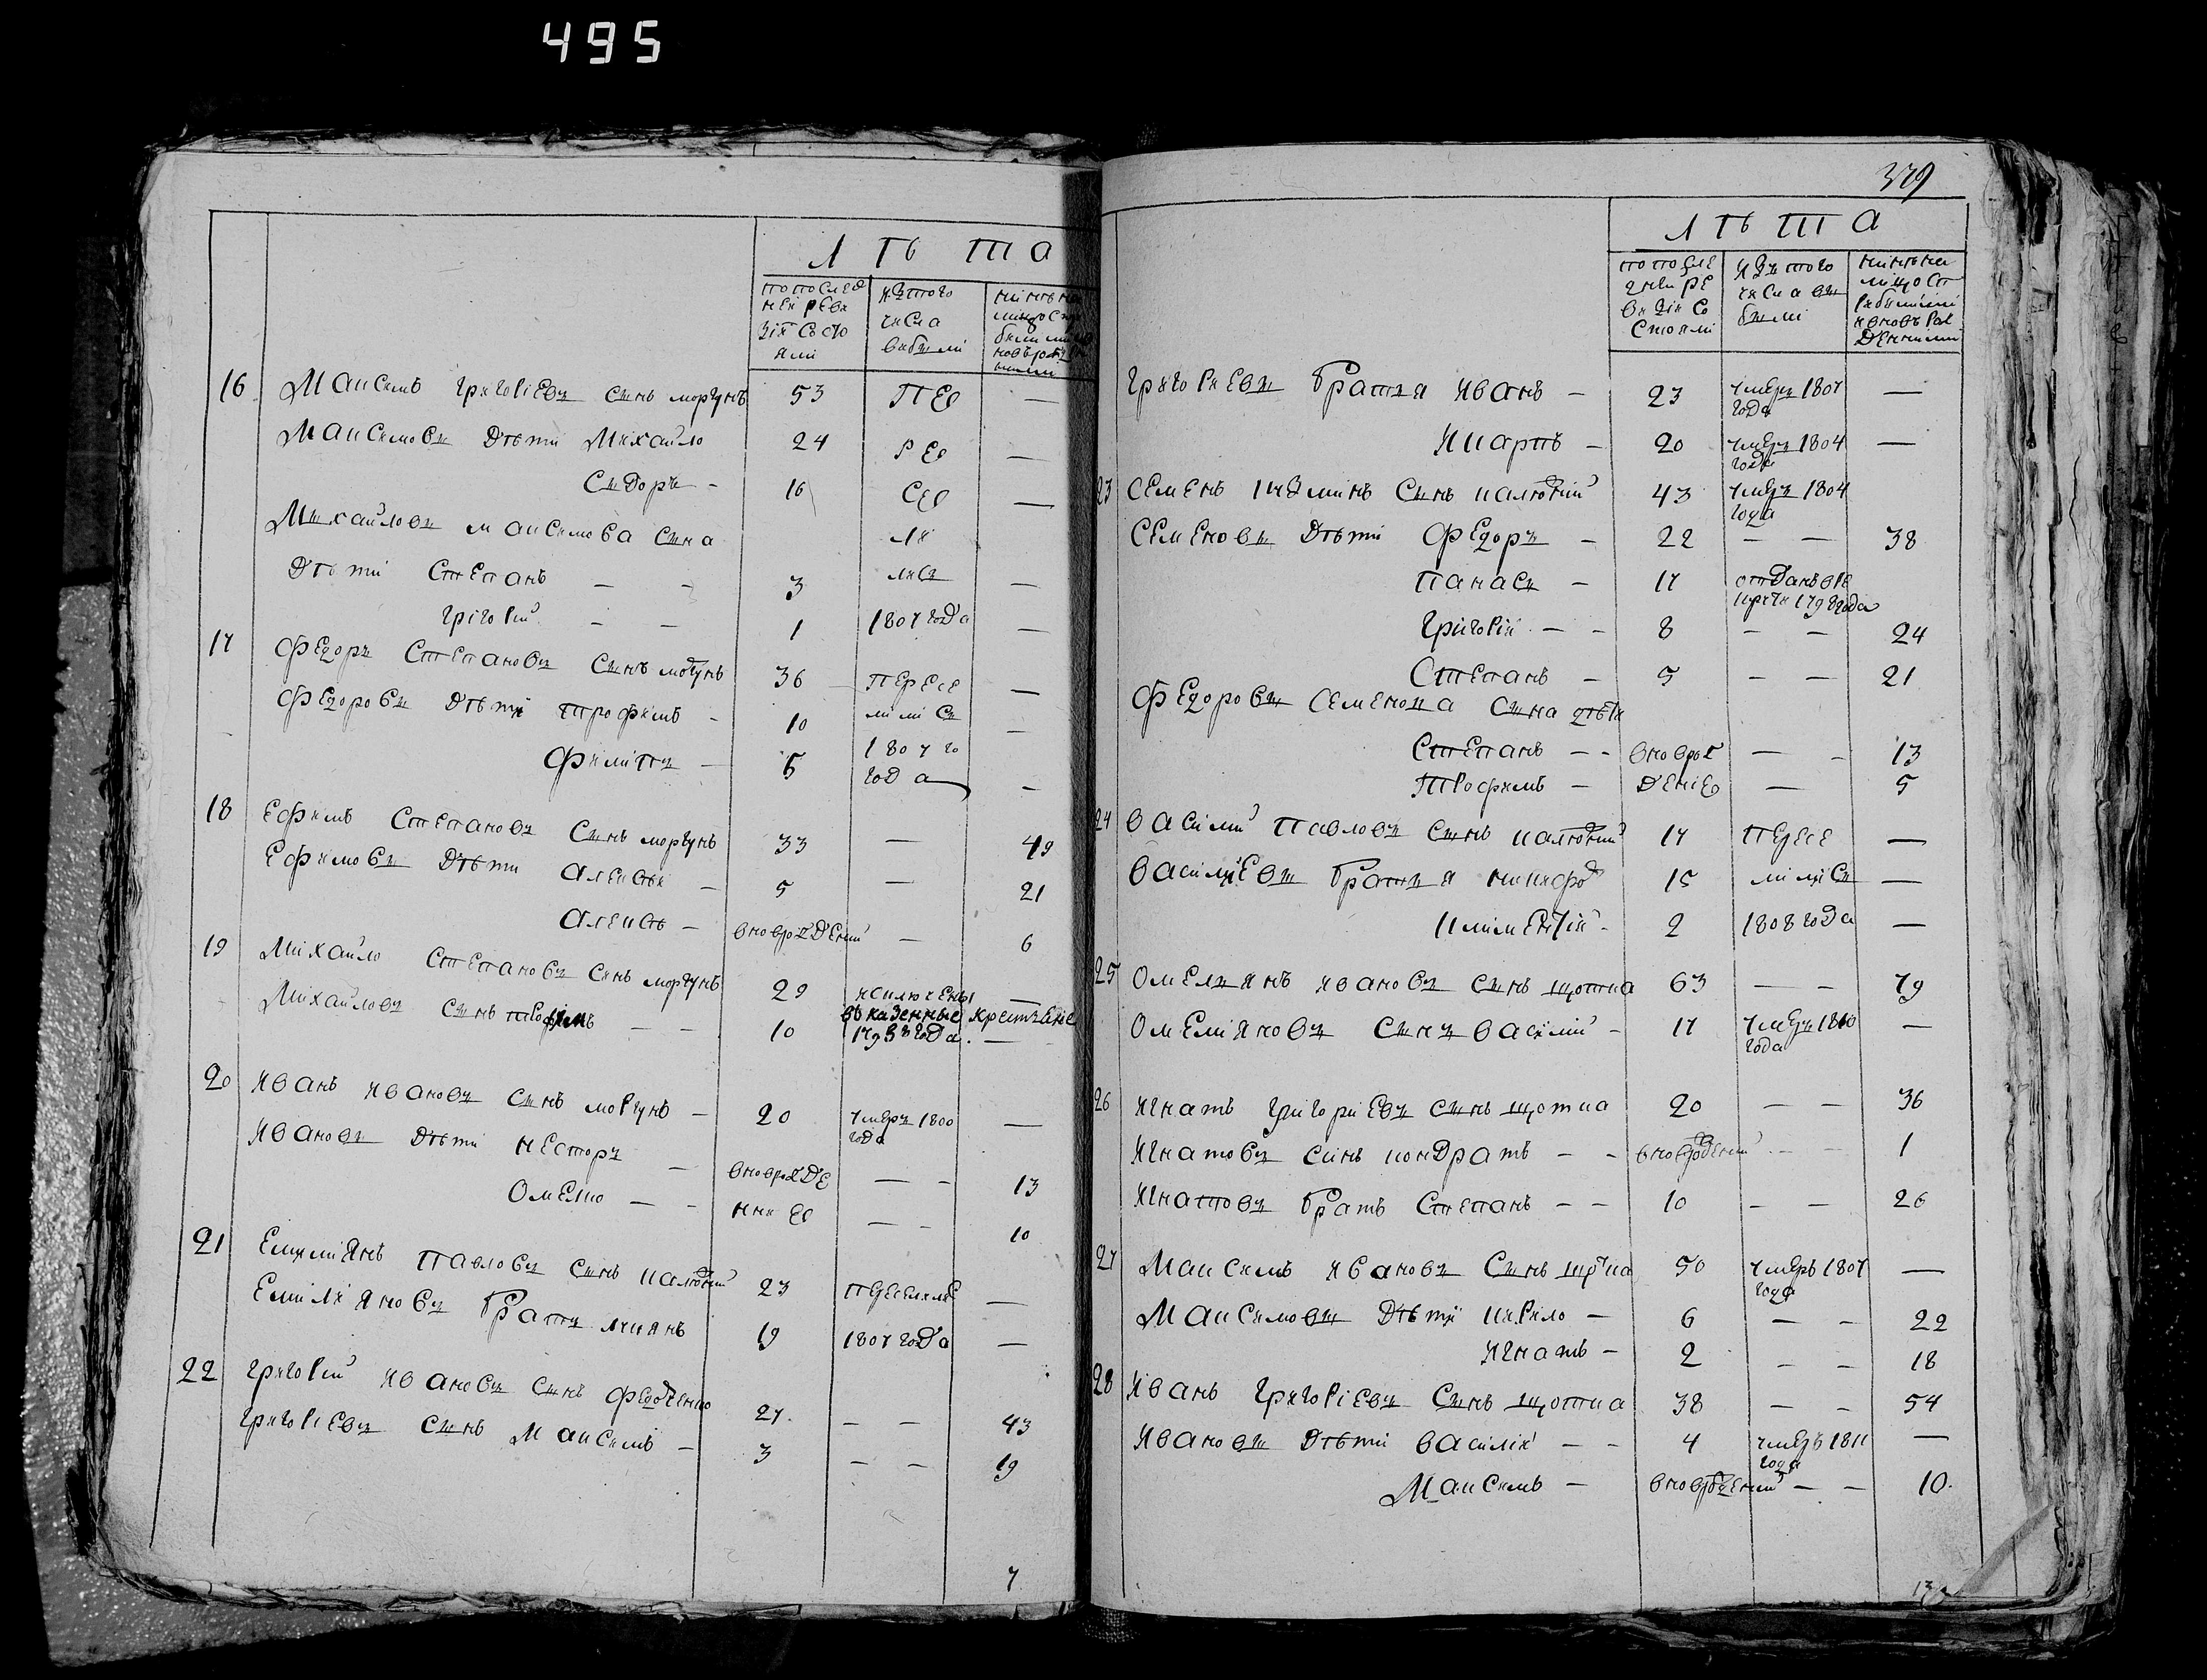 495
ЛѢТА
по послед
ней реви
зіи состо
яли
изтого
числа
выбыли
16 Максимъ григоріевъ сынъ моргунъ 53 пе —
Максимовы Дѣти Михайло 24 ре —
Сидоръ - 16 се —
Михайловы максимова сына ли
Дѣти Степанъ — - 3 лись —
григорій — — 1 1807 года —
17 Федоръ Степановъ сынъ моргунъ 36 пересе —
Федоровы Дѣти трофимъ - 10 лились —
Филипъ — 5 1807 го года —
18 Ефимъ Степановъ Сынъ моргунъ 33 — 49
Ефимовы Дѣти алексѣй — 5 — 21
19 Михайло Степановъ Сынъ моргунъ 29 исключены —
въ казенные крестьяне
Михайловъ Сынъ трофимъ — — 10 года. —
20 Иванъ Ивановъ Сынъ моргунъ — 20 умеръ 1800 —
года
Ивановы Дѣти несторъ — вноврожде — - 13
Омелко — - нние — - 10
21 Емилиянъ Павловъ Сынъ 23 —
Емилияновъ братъ лукянъ 19 1807 года —
22 григорій Ивановъ Сынъ федченко 27. — — 43
григоріевъ Сынъ Максимъ — 3 — — 19
7
379
ЛѢТА
по после
дней ре
визіи со
стояли
изъ того
числа вы
были
григориевы братья Иванъ — 23 умеръ 1807 —
года
Карпъ — 20 умеръ 1804 —
года
23 Семенъ Сынъ 43 умеръ 1804
года
Семеновы Дѣти Федоръ — 22 — — 38
Панасъ — 17 отданъ вре
крути года
григорій — - 8 — — 24
Степанъ — 5 — — 21
Федоровы Семенова Сына дѣти
Степанъ — - вноврож — - 13
Трофимъ — Деніе — 5
24 Василій Павловъ Сынъ 17 пересе —
Василіевы братья 15 лились —
Климентій - 2 1808 года —
25 Омельянъ Ивановъ Сынъ щотка 63 — — 79
Омеляновъ Сынъ Василій — 17 умеръ —
года
26 Игнатъ григоріевъ сынъ щотка 20 — — 36
Игнатовъ синъ кондратъ — - вноврожденній - — 1
Игнатовъ братъ Степанъ — — 10 — — 26
27 Максимъ Ивановъ Сынъ щотка 50 умеръ 1807 —
года
Максимовы Дѣти Кирило — 6 — - 22
Игнатъ — 2 — — 18
28 Иванъ григоріевъ Сынъ щотка 38 — - 54
Ивановы Дѣти Василій — - 4 умеръ 1811 —
года
Максимъ — вноврожденній — — 10.